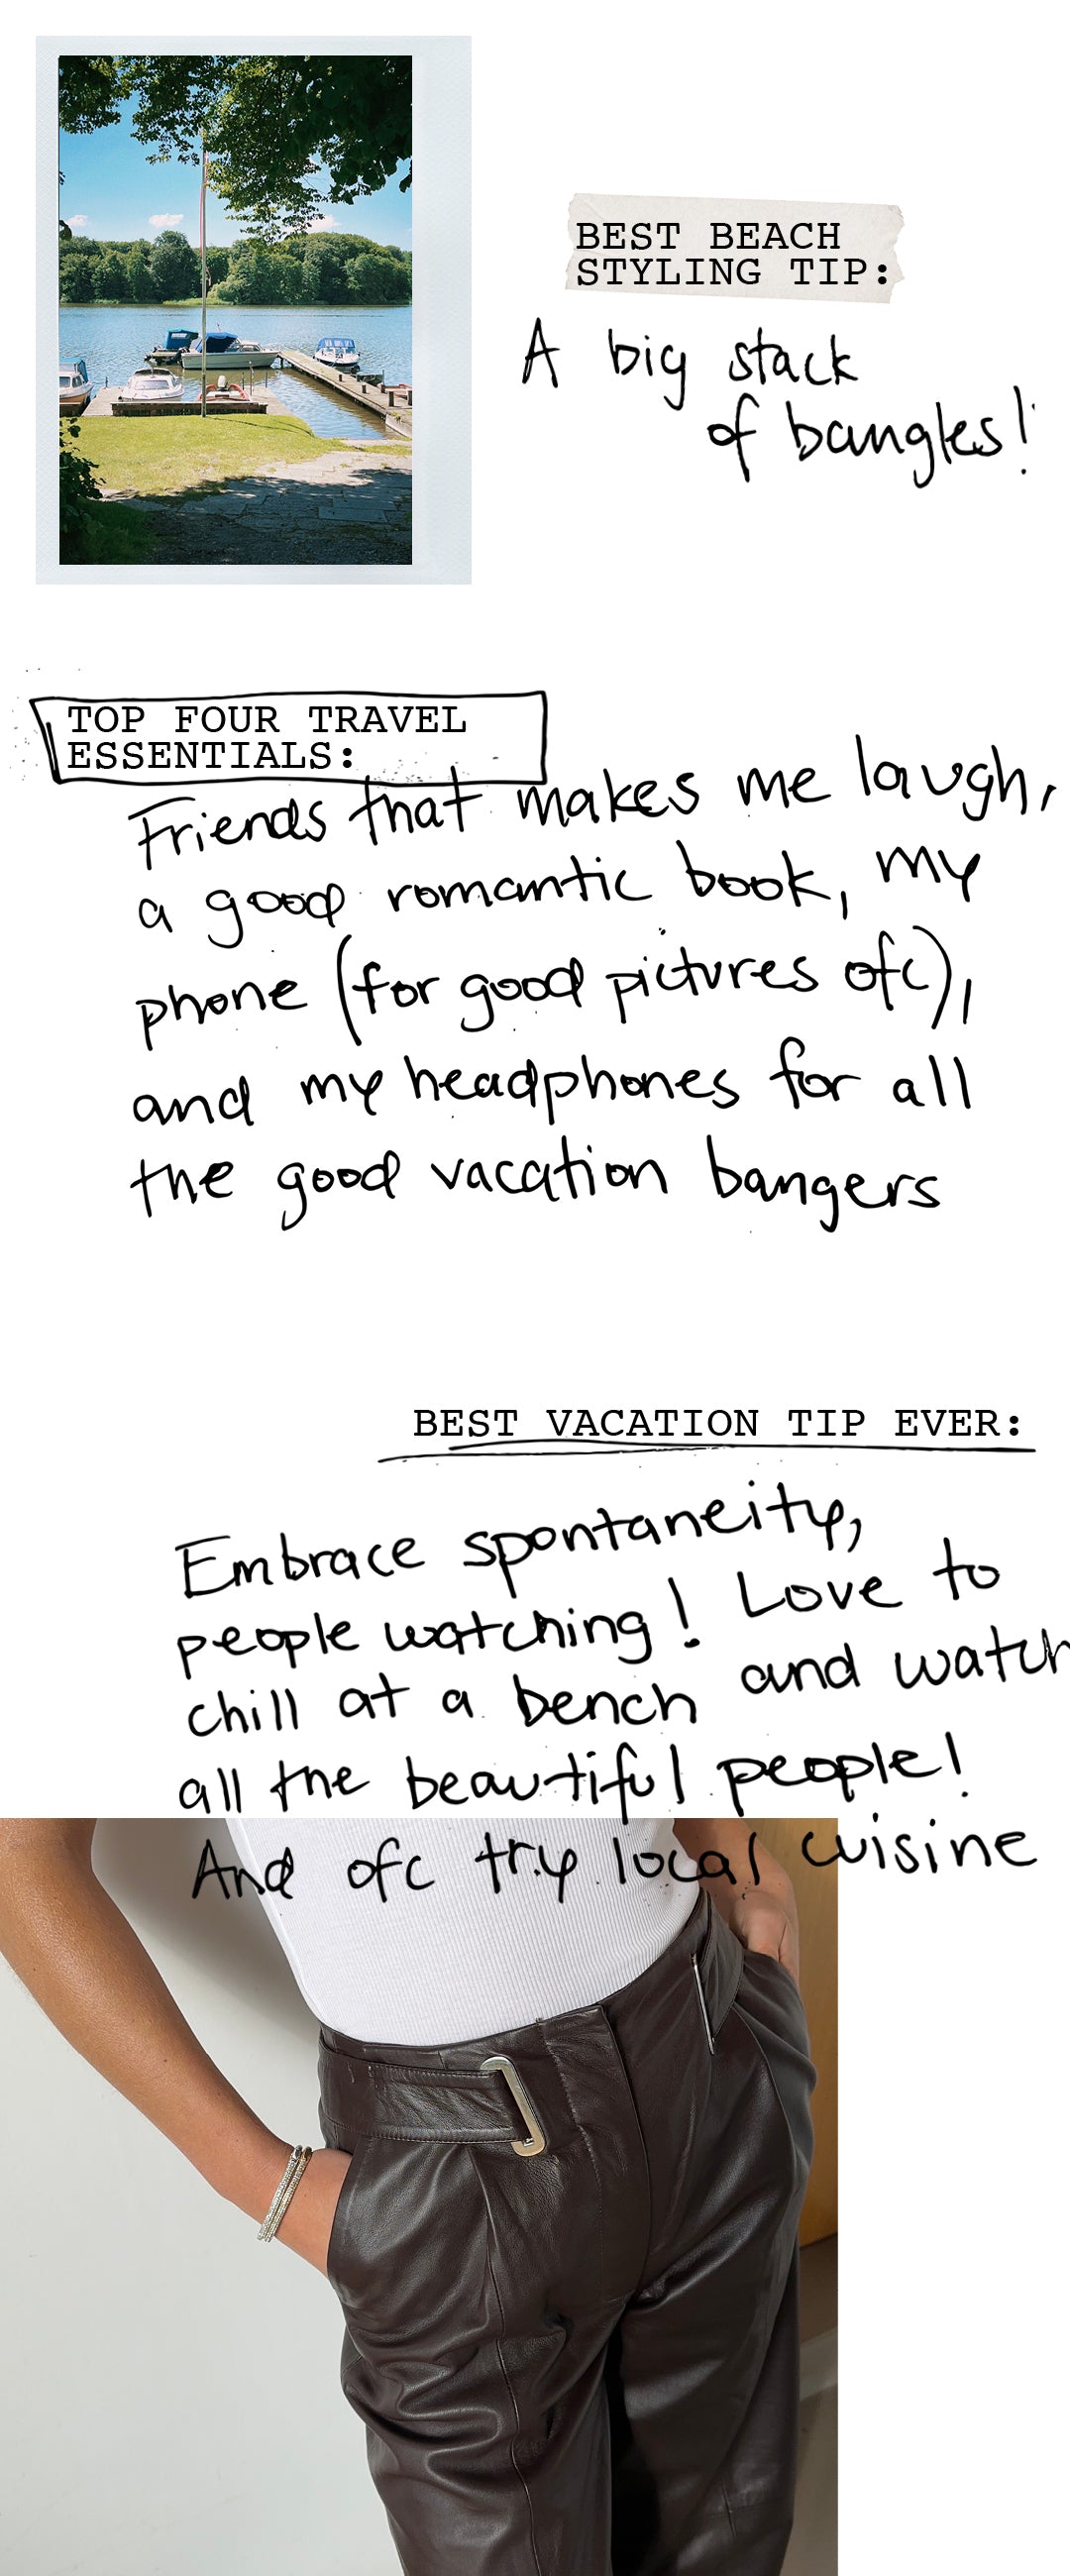 BEST BEACH
STYLING TIP:
A big stack
of bangles!
TOP FOUR TRAVEL
ESSENTIALS:
Friends that makes me laugh,
a good romantic book, my
phone (for good pictures ofc),
and my headphones for all
the good vacation bangers
BEST VACATION TIP EVER:
Embrace spontaneity,
people watching! Love to
chill at a bench and watch
all the beautiful people!
And ofc try local cuisine